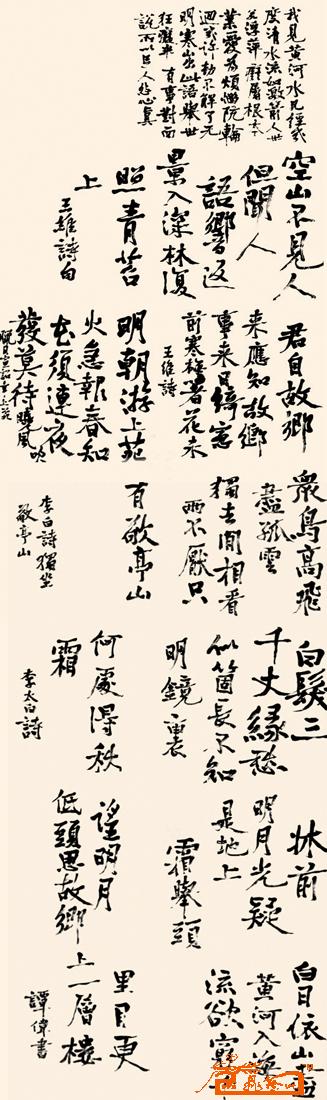 我見黃河水凡經幾
度清水流如激箭人世
若浮萍癡屬根本
業愛為煩惱阬輪
迴幾許劫只解了无
明寒山出此語舉世
狂癡半有事對面
說所以足人怨心真
空山不見人
但聞人
語響返
景入深林復
照青苔
上
王維詩句
君自故鄉
來應知故鄉
事來日綺窗
前寒梅著花未
王維詩
明朝游上苑
火急報春知
花須連夜
發莫待曉風吹
臘日宣詔幸上苑
眾鳥高飛
盡孤雲
獨去閒相看
兩不厭只
有敬亭山
李白詩獨坐
敬亭山
白髮三
千丈緣愁
似箇長不知
明鏡裏
何處得秋
霜
李太白詩
牀前
明月光疑
是地上
霜舉頭
望明月
低頭思故鄉
白日依山盡
黃河入海
流欲窮
里目更
上一層樓
譚偉書